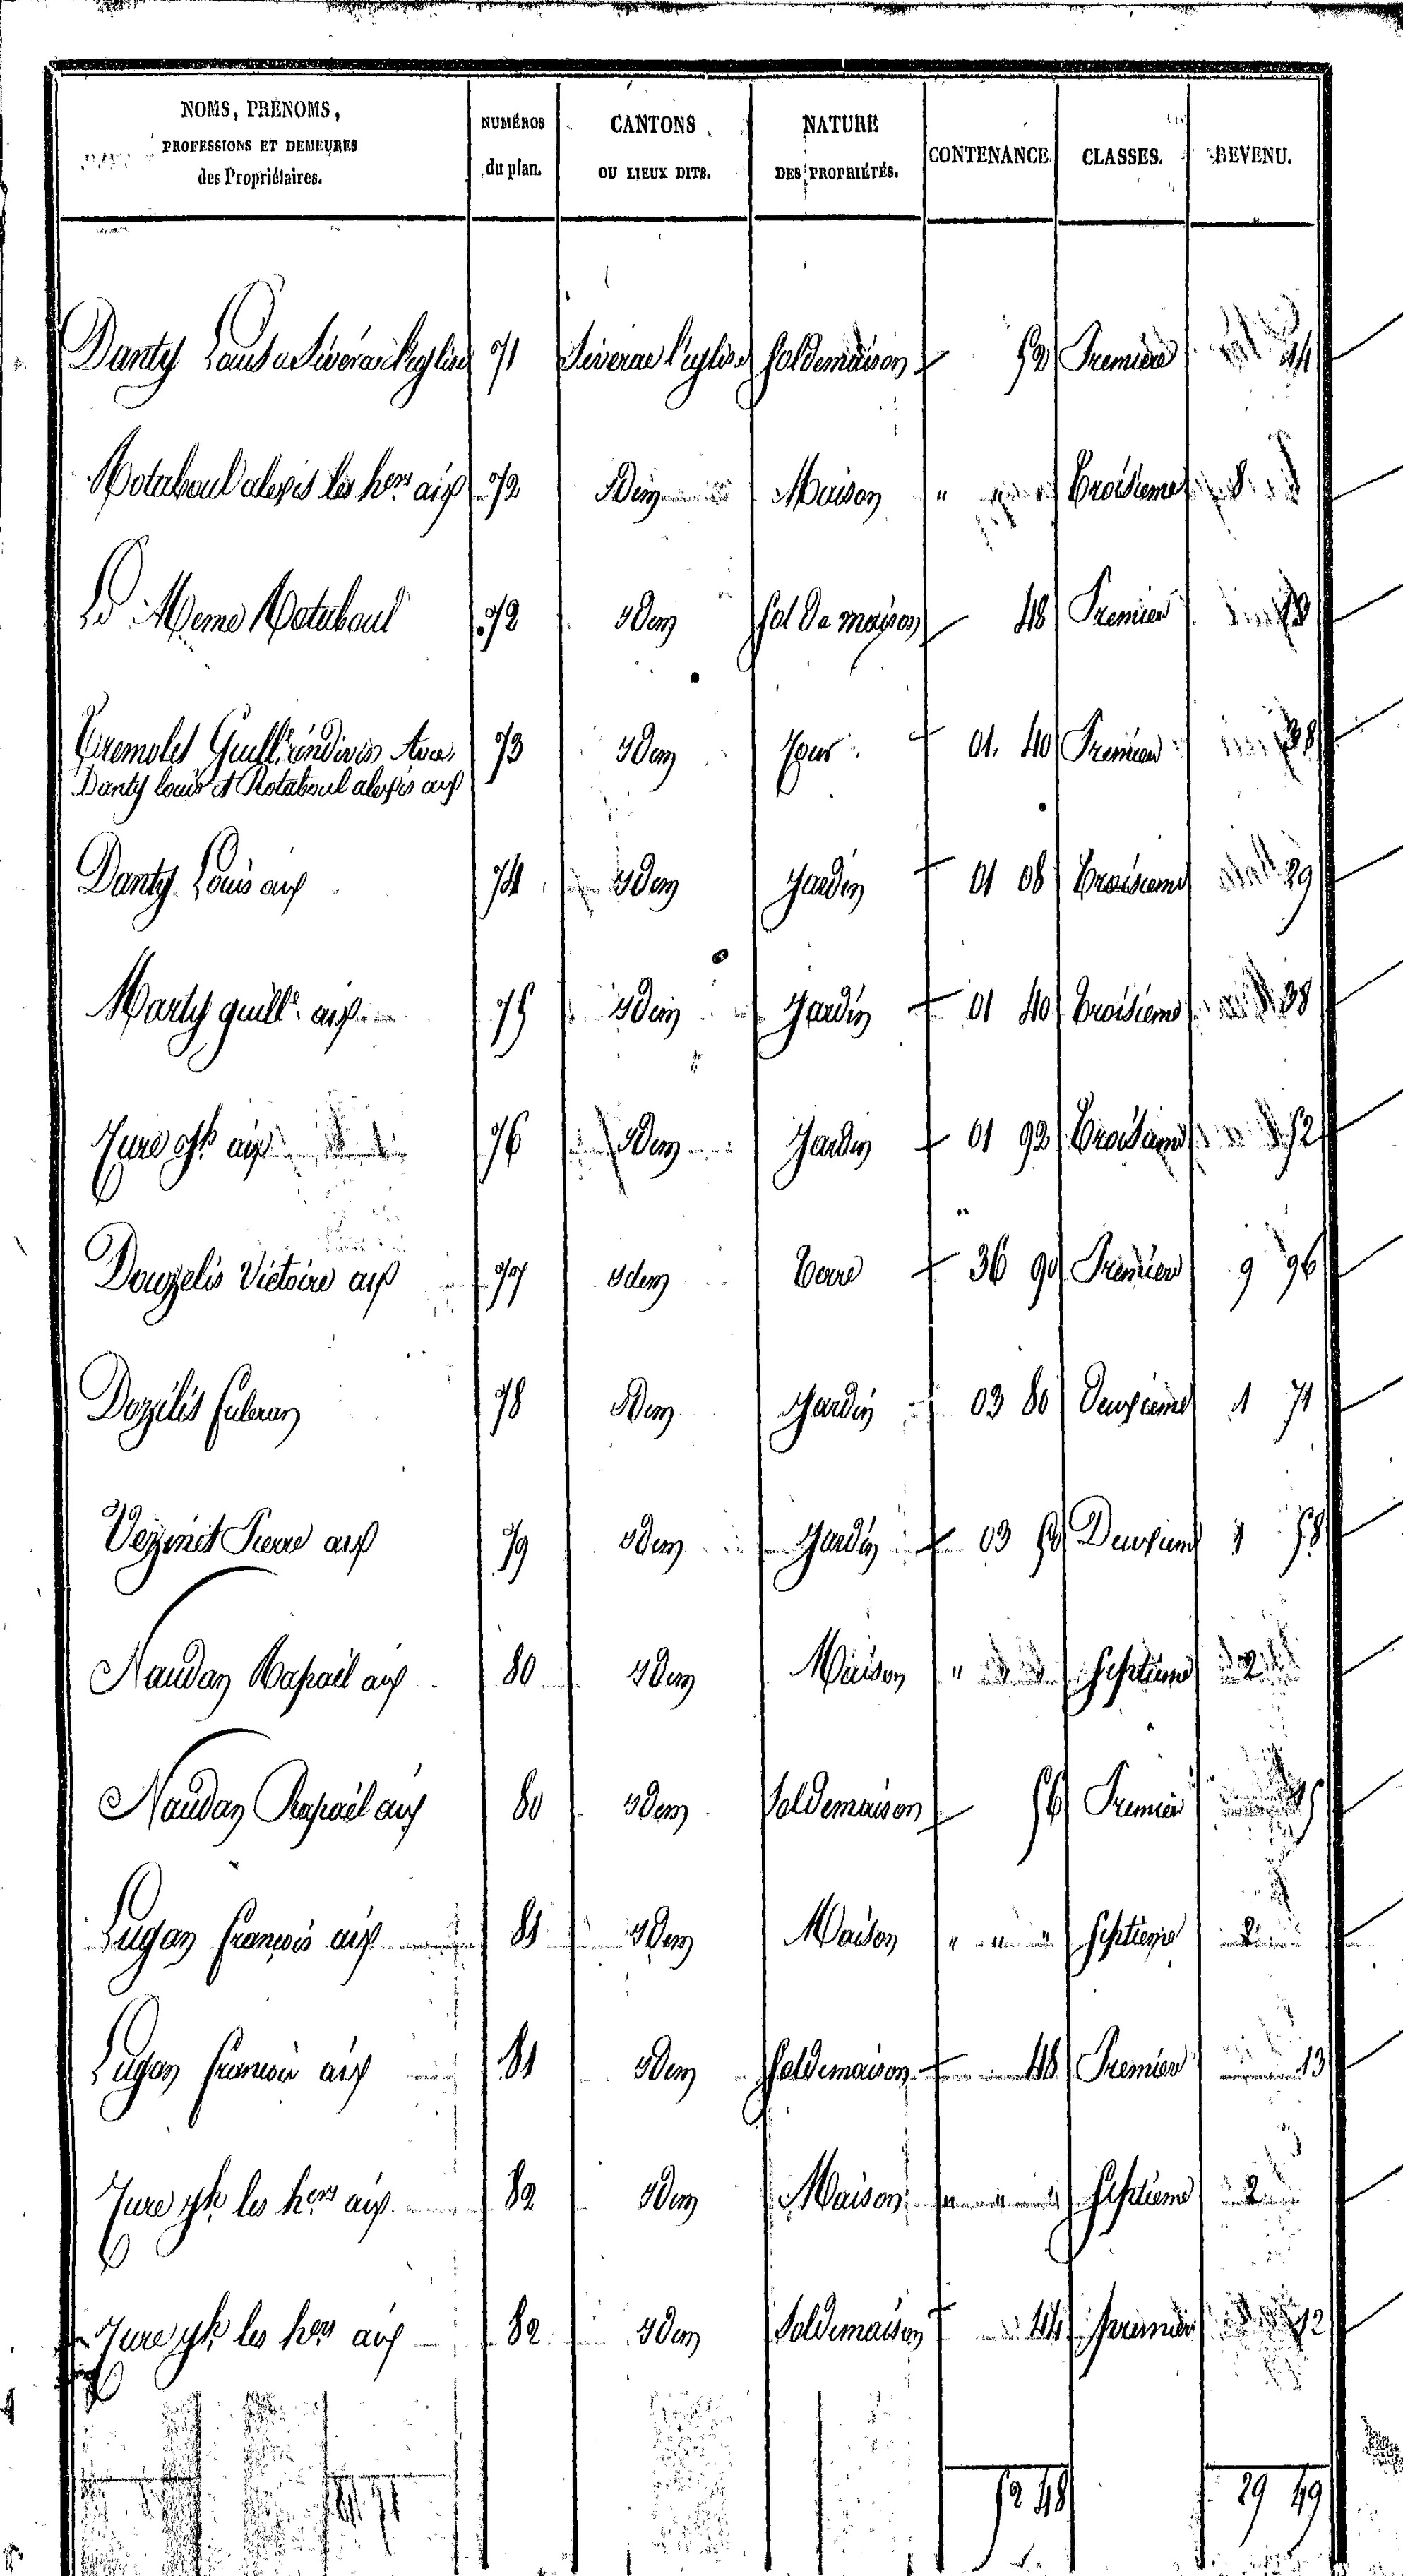 NOMS, PRÉNOMS, PROFESSIONS ET DEMEURES des Propriétaires. NUMÉROS du plan. CANTONS OU LIEUX DITS. NATURE DES PROPRIÉTÉS. CONTENANCE. CLASSES. REVENU.
Danty Louis a Séverac l'eglise 71 Séverac l'eglise Sol de maison 52 Premiere 14
Rotaboul alexis les hers aux 72 Idem Maison " " Troisieme 8
Le Meme Rotaboul 72 Idem Sol de maison 48 Premier 13
Tremolet Guill. indivis Avec 73 Idem 01. 40 Premier 38
Danty louis et Rotaboul alexis aux
Danty Louis aux 74 Idem Jardin 01 08 Troisieme 29
Marty guille aux 75 Idem Jardin 01 40 Troisieme 38
aux 76 Idem Jardin 01 92 Troisieme 52
Douzelis Victoire aux 77 Idem Terre 36 90 Premiere 9 96
Dozilis fulcran 78 Idem Jardin 03 80 Deuxieme 1 71
Vezinet Pierre aux 79 Idem Jardin 03 50 Deuxieme 1 58
Naudan Rapaël aux 80 Idem Maison " " " Septieme 2
Naudan Rapaël aux 80 Idem Sol de maison 56 Premier 15
Lugan françois aux 81 Idem Maison " " " Septieme 2
Lugan françois aux 81 Idem Sol de maison 48 Premier 13
les hers aux 82 Idem Maison " " " Septieme 2
les hers aux 82 Idem Sol de maison 44 premier 12
52 48 29 49